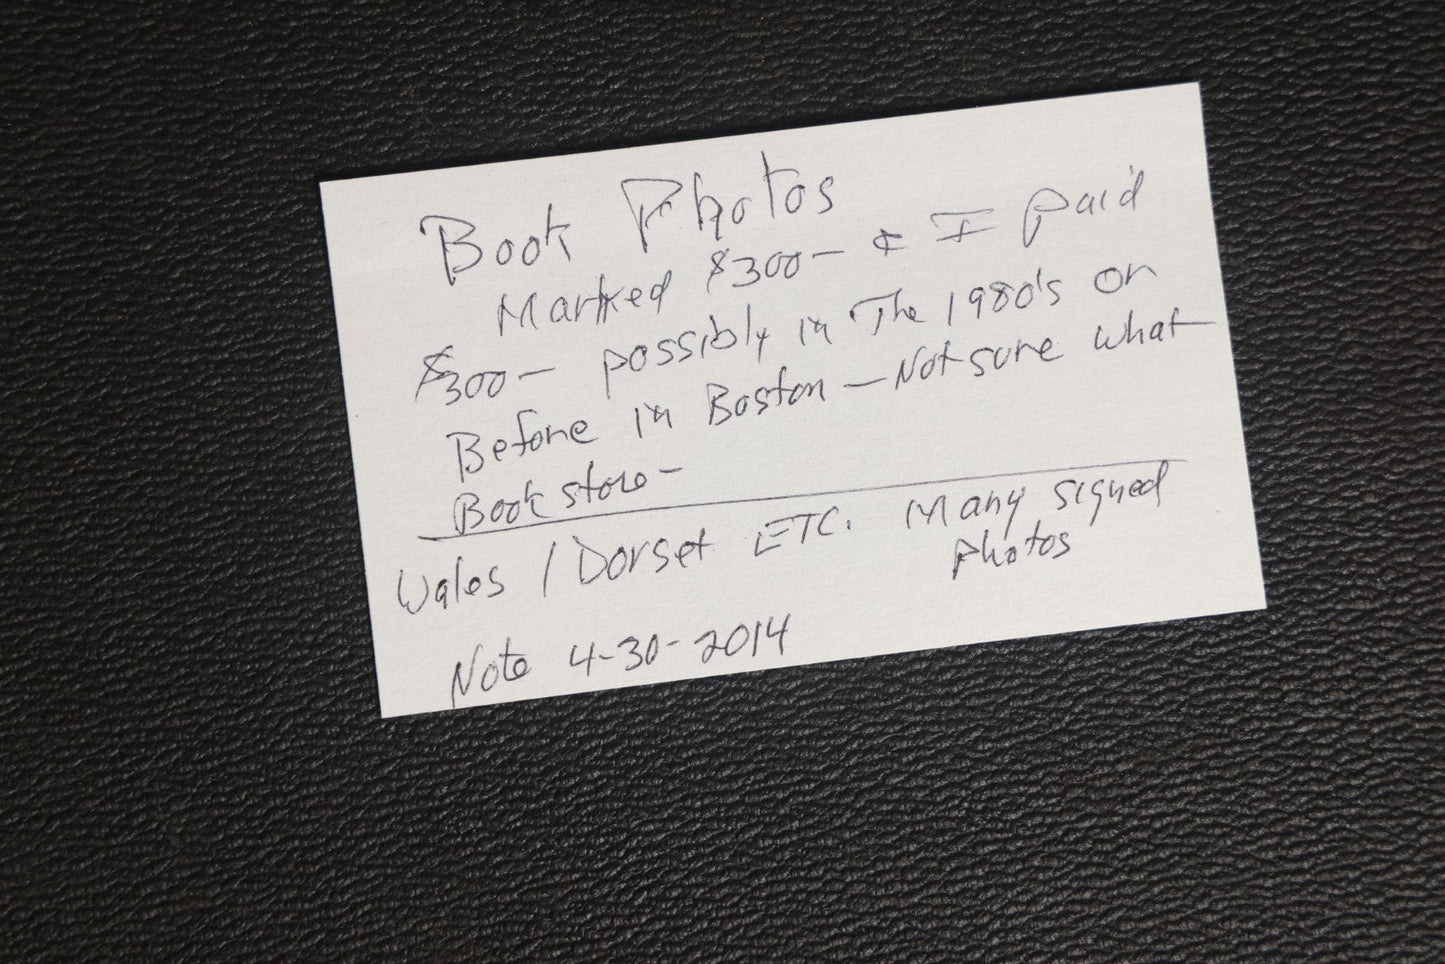 Book Photos
Marked $300- & I paid
$300- possibly in The 1980's or
Before in Boston - Not sure what
Book store -
Wales / Dorset ETC. Many signed
photos
Note 4-30-2014